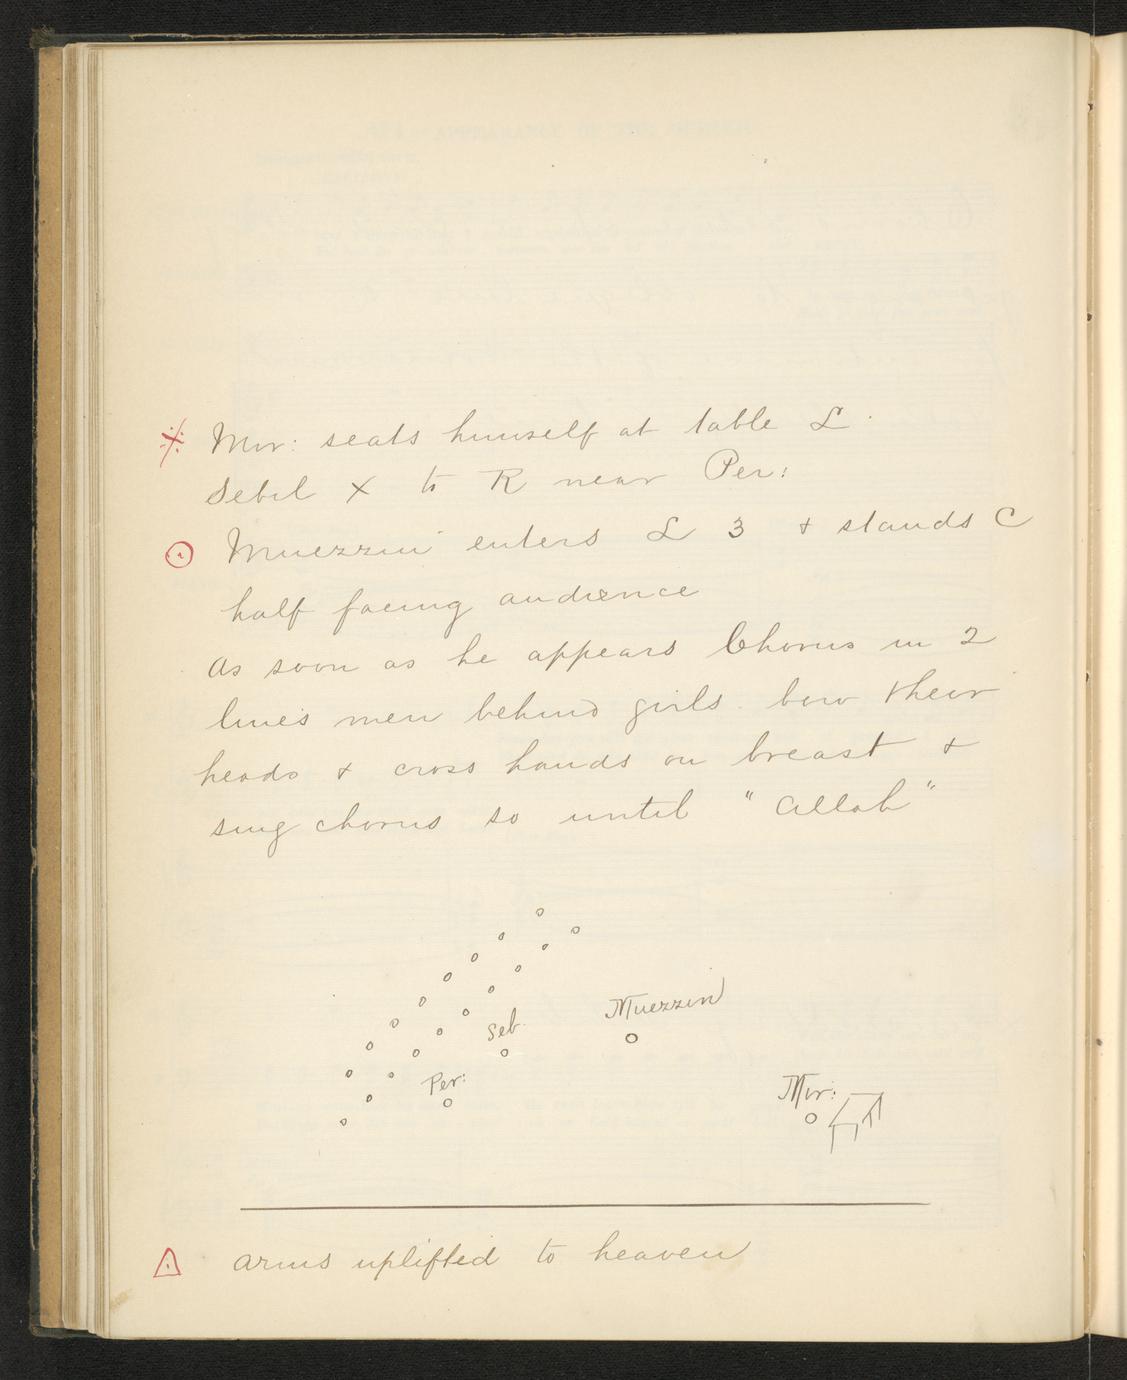 ※ Mir: seats himself at table L
Sebil X to R near Per:
⊙ Muezzin enters L 3 + stands C
half facing audience
as soon as he appears Chorus in 2
lines men behind girls. bow their
heads + cross hands on breast +
sing chorus so until "Allah"
Muezzin
Seb.
Per:
Mir:
△ arms uplifted to heaven